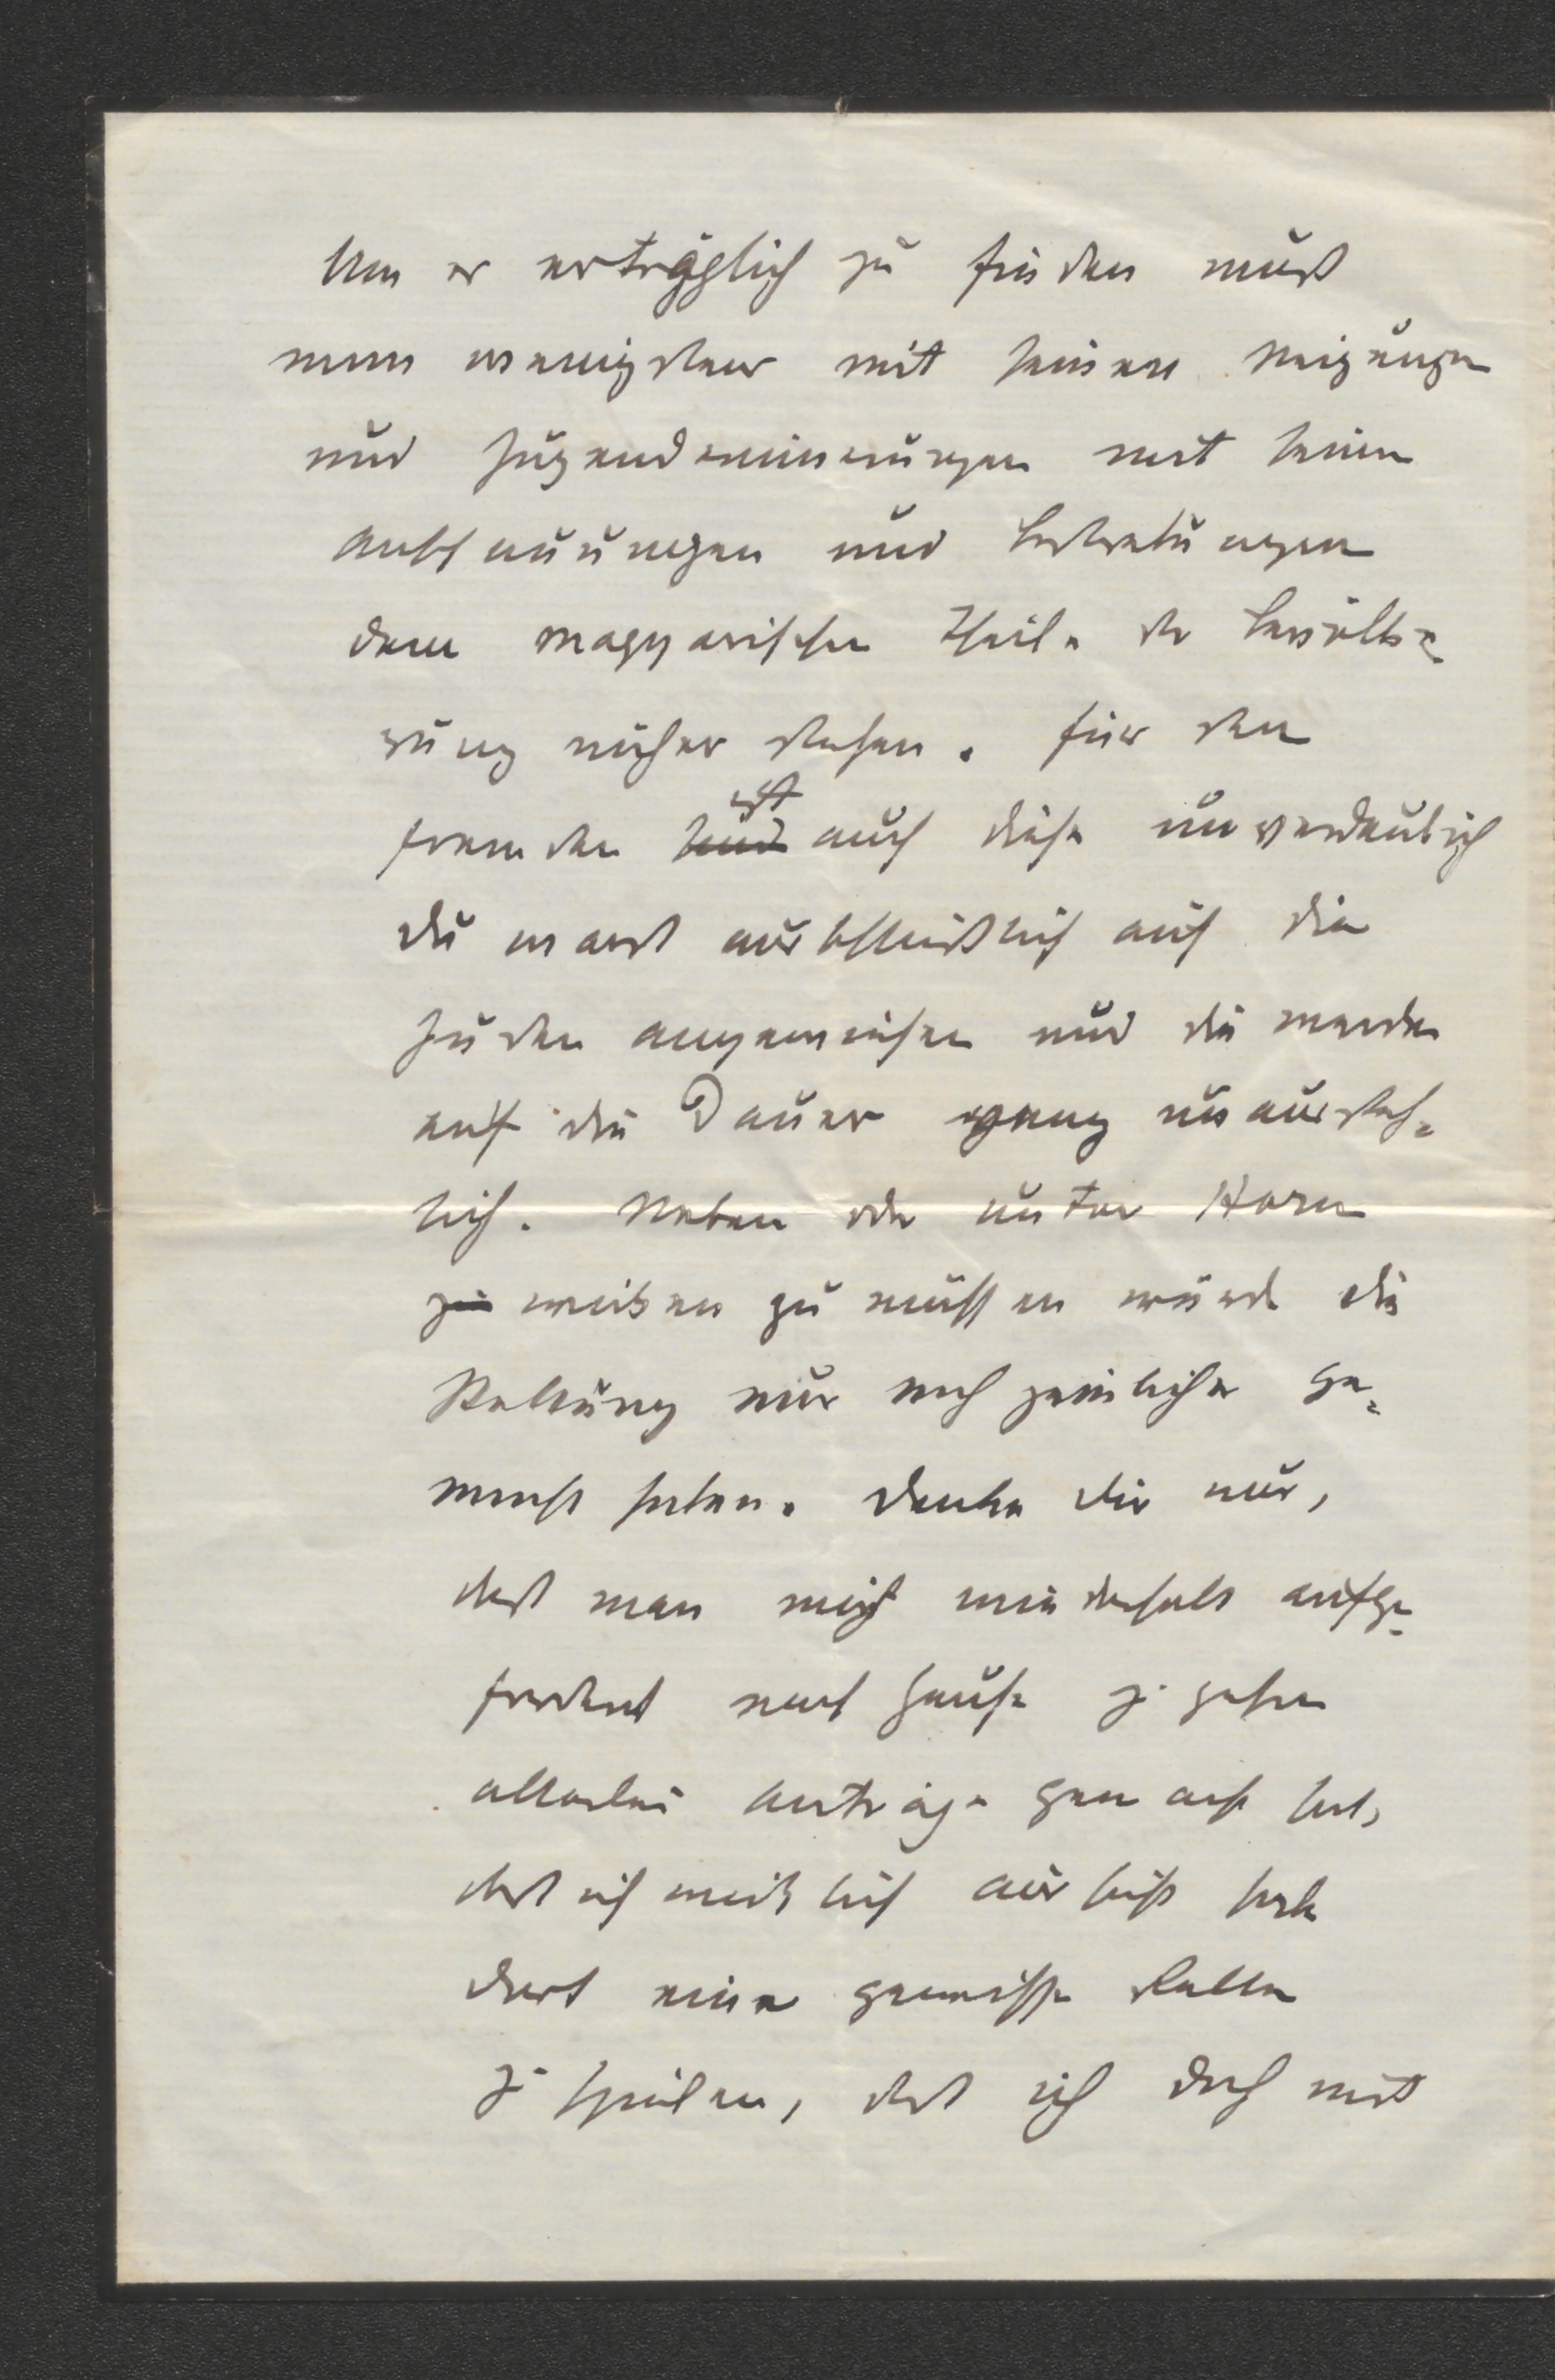 Um es erträglich zu finden muß
man wenigstens mit seinen Neigungen
und Jugenderinnerungen mit seinen
Anschauungen und Bestrebungen
dem magyarischen Theile der Bevölke=
rung näher stehen. Für den
Fremden sind ist auch diese unverdaulich
du warst ausschließlich auf die
Juden angewiesen und die werden
auf die Dauer ganz unaussteh=
lich. Neben oder unter Horn
zu wirken zu müssen würde die
Stellung nur noch peinlicher ge=
macht haben. Denke dir nur,
daß man mich wiederholt aufge=
fordert nach Hause z. gehen
allerlei Anträge gemacht hat,
daß ich wirklich Aussicht habe
dort eine gewisse Rolle
z. spielen, daß ich doch mit